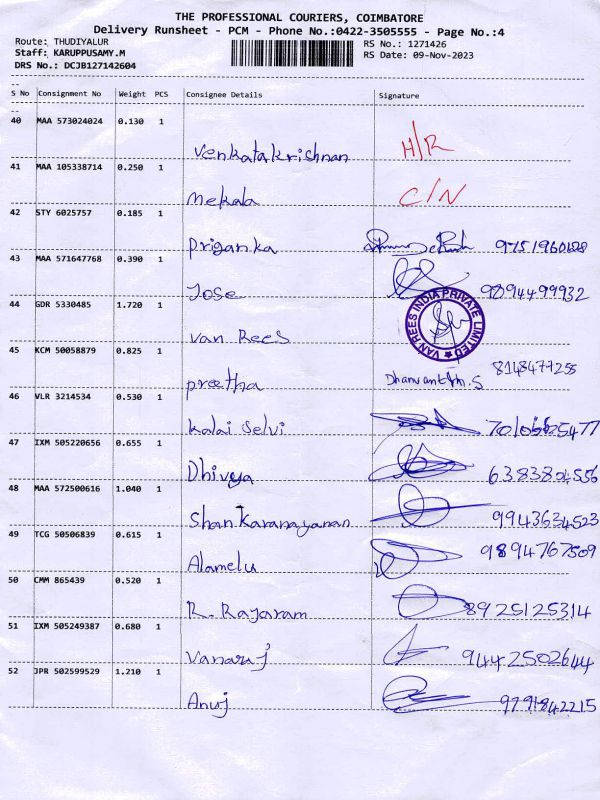 THE PROFESSIONAL COURIERS, COIMBATORE
Delivery Runsheet - PCM - Phone No.:0422-3505555 - Page No.:4
Route: THUDIYALUR
RS No.: 1271426
Staff: KARUPPUSAMY.M
RS Date: 09-Nov-2023
DRS No.: DCJB127142604
S No Consignment No Weight PCS Consignee Details Signature
40 MAA 573024024 0.130 1
Venkatakrishnan H/R
41 MAA 105338714 0.250 1
Mekala C/N
42 STY 6025757 0.185 1
Priyanka
43 MAA 571647768 0.390 1
Jose 9894499932
44 GDR 5330485 1.720 1
VAN REES INDIA PRIVATE LIMITED
Van Rees
45 KCM 50058879 0.825 1
Preetha
46 VLR 3214534 0.530 1
Kalai Selvi
47 IXM 505220656 0.655 1
Dhivya
48 MAA 572500616 1.040 1
Shankaranayanan 9943634523
49 TCG 50506839 0.615 1
Alamelu 9894767509
50 CMM 865439 0.520 1
R. Rajaram 8925125314
51 IXM 505249387 0.680 1
Vanaraj 9442502644
52 JPR 502599529 1.210 1
Anuj 9791842215